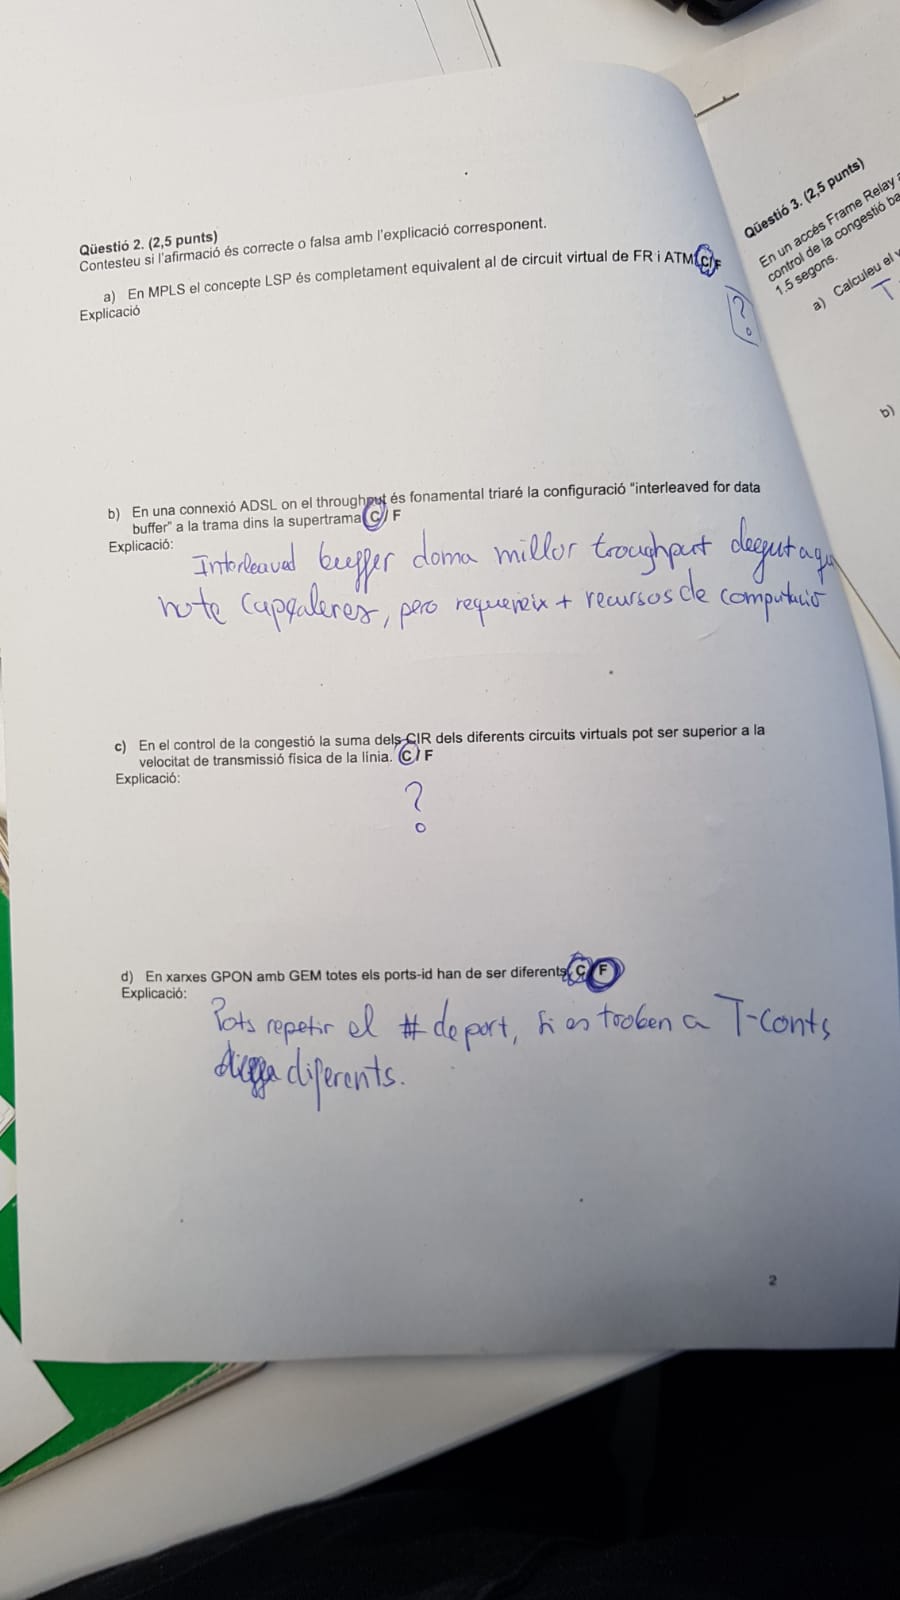 Qüestió 2. (2,5 punts)
Contesteu si l'afirmació és correcte o falsa amb l'explicació corresponent.
a) En MPLS el concepte LSP és completament equivalent al de circuit virtual de FR i ATM. C/F
Explicació
?
b) En una connexió ADSL on el throughput és fonamental triaré la configuració "interleaved for data
buffer" a la trama dins la supertrama C/ F
Explicació:
Interleaved buffer dona millor troughput degut a qu
note capçaleres, pero requereix + recursos de computació
c) En el control de la congestió la suma dels CIR dels diferents circuits virtuals pot ser superior a la
velocitat de transmissió física de la línia. C / F
Explicació:
?
d) En xarxes GPON amb GEM totes els ports-id han de ser diferents. C/F
Explicació:
Pots repetir el # de port, si es troben a T-conts
diferents.
2
Qüestió 3. (2,5 punts)
En un accés Frame Relay
control de la congestió ba
1.5 segons.
a) Calculeu el
T
b)